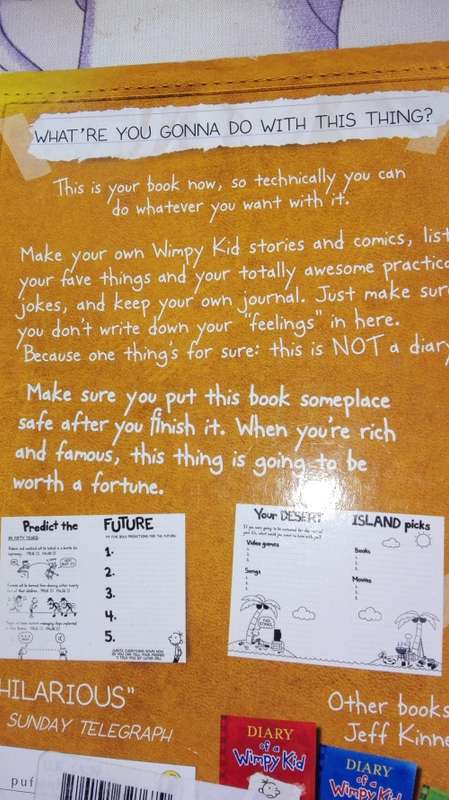 WHAT'RE YOU GONNA DO WITH THIS THING?
This is your book now, so technically you can
do whatever you want with it.
Make your own Wimpy Kid stories and comics, list
your fave things and your totally awesome practica
jokes, and keep your own journal. Just make sure
you don't write down your "feelings" in here.
Because one thing's for sure: this is NOT a diary
Make sure you put this book someplace
safe after you finish it. When you're rich
and famous, this thing is going to be
worth a fortune.
Predict the FUTURE
IN FIFTY YEARS:
1.
2.
3.
4.
5.
Your DESERT ISLAND picks
Video games
Books
Songs
Movies
HILARIOUS"
SUNDAY TELEGRAPH
Other books
Jeff Kinne
DIARY
of a
Wimpy Kid
DIARY
of a
Wimpy Kid
puf